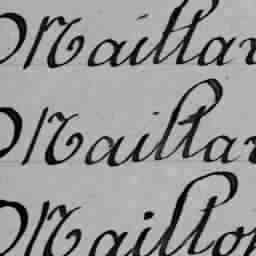 Maillar
Maillar
Maillo